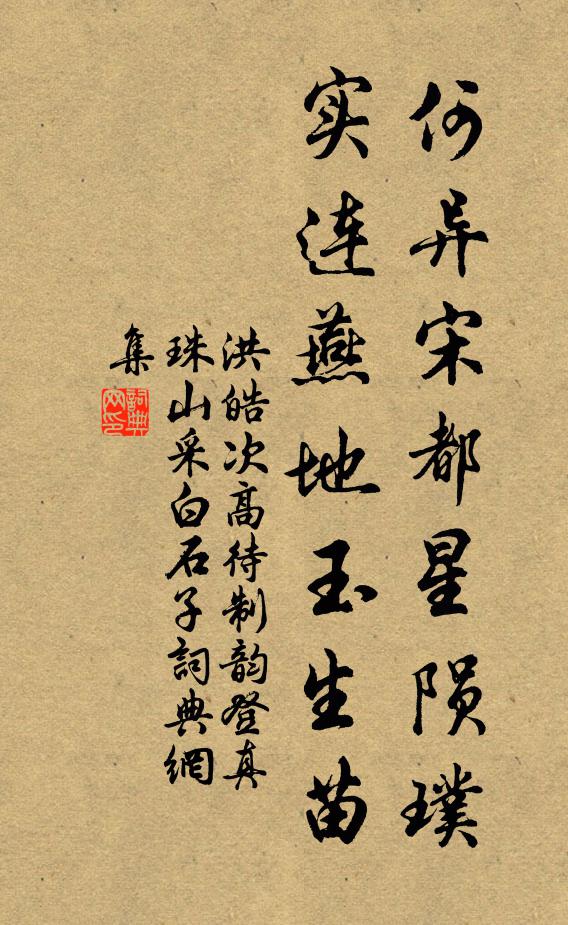 何异宋都星陨璞
实连燕地玉生苗
洪皓次高待制韵登真
珠山采白石子詞典網
集
詞典
网印